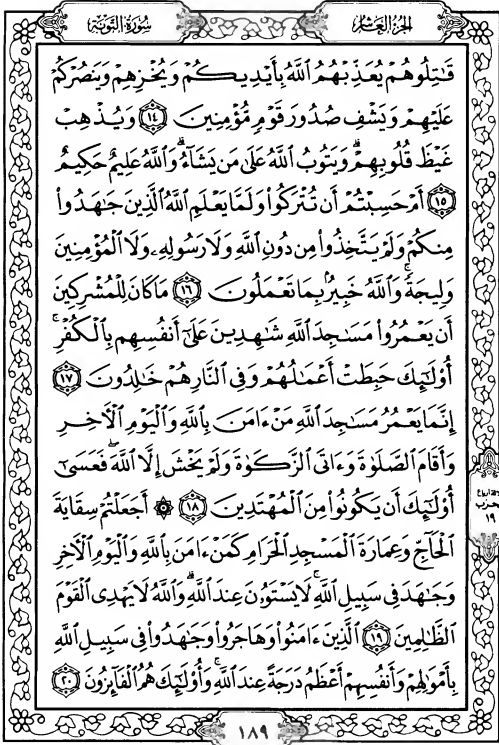 سورة التوبة
الجزء العاشر
قَـٰتِلُوهُمْ يُعَذِّبْهُمُ ٱللَّهُ بِأَيْدِيكُمْ وَيُخْزِهِمْ وَيَنصُرْكُمْ
عَلَيْهِمْ وَيَشْفِ صُدُورَ قَوْمٍ مُّؤْمِنِينَ ١٤ وَيُذْهِبْ
غَيْظَ قُلُوبِهِمْ ۗ وَيَتُوبُ ٱللَّهُ عَلَىٰ مَن يَشَآءُ ۗ وَٱللَّهُ عَلِيمٌ حَكِيمٌ
١٥ أَمْ حَسِبْتُمْ أَن تُتْرَكُوا۟ وَلَمَّا يَعْلَمِ ٱللَّهُ ٱلَّذِينَ جَـٰهَدُوا۟
مِنكُمْ وَلَمْ يَتَّخِذُوا۟ مِن دُونِ ٱللَّهِ وَلَا رَسُولِهِۦ وَلَا ٱلْمُؤْمِنِينَ
وَلِيجَةً ۚ وَٱللَّهُ خَبِيرٌۢ بِمَا تَعْمَلُونَ ١٦ مَا كَانَ لِلْمُشْرِكِينَ
أَن يَعْمُرُوا۟ مَسَـٰجِدَ ٱللَّهِ شَـٰهِدِينَ عَلَىٰٓ أَنفُسِهِم بِٱلْكُفْرِ ۚ
أُو۟لَـٰٓئِكَ حَبِطَتْ أَعْمَـٰلُهُمْ وَفِى ٱلنَّارِ هُمْ خَـٰلِدُونَ ١٧
إِنَّمَا يَعْمُرُ مَسَـٰجِدَ ٱللَّهِ مَنْ ءَامَنَ بِٱللَّهِ وَٱلْيَوْمِ ٱلْـَٔاخِرِ
وَأَقَامَ ٱلصَّلَوٰةَ وَءَاتَى ٱلزَّكَوٰةَ وَلَمْ يَخْشَ إِلَّا ٱللَّهَ ۖ فَعَسَىٰٓ
أُو۟لَـٰٓئِكَ أَن يَكُونُوا۟ مِنَ ٱلْمُهْتَدِينَ ١٨ ۞ أَجَعَلْتُمْ سِقَايَةَ
ٱلْحَآجِّ وَعِمَارَةَ ٱلْمَسْجِدِ ٱلْحَرَامِ كَمَنْ ءَامَنَ بِٱللَّهِ وَٱلْيَوْمِ ٱلْـَٔاخِرِ
وَجَـٰهَدَ فِى سَبِيلِ ٱللَّهِ ۚ لَا يَسْتَوُۥنَ عِندَ ٱللَّهِ ۗ وَٱللَّهُ لَا يَهْدِى ٱلْقَوْمَ
ٱلظَّـٰلِمِينَ ١٩ ٱلَّذِينَ ءَامَنُوا۟ وَهَاجَرُوا۟ وَجَـٰهَدُوا۟ فِى سَبِيلِ ٱللَّهِ
بِأَمْوَٰلِهِمْ وَأَنفُسِهِمْ أَعْظَمُ دَرَجَةً عِندَ ٱللَّهِ ۚ وَأُو۟لَـٰٓئِكَ هُمُ ٱلْفَآئِزُونَ ٢٠
الحزب
١٩
١٨٩